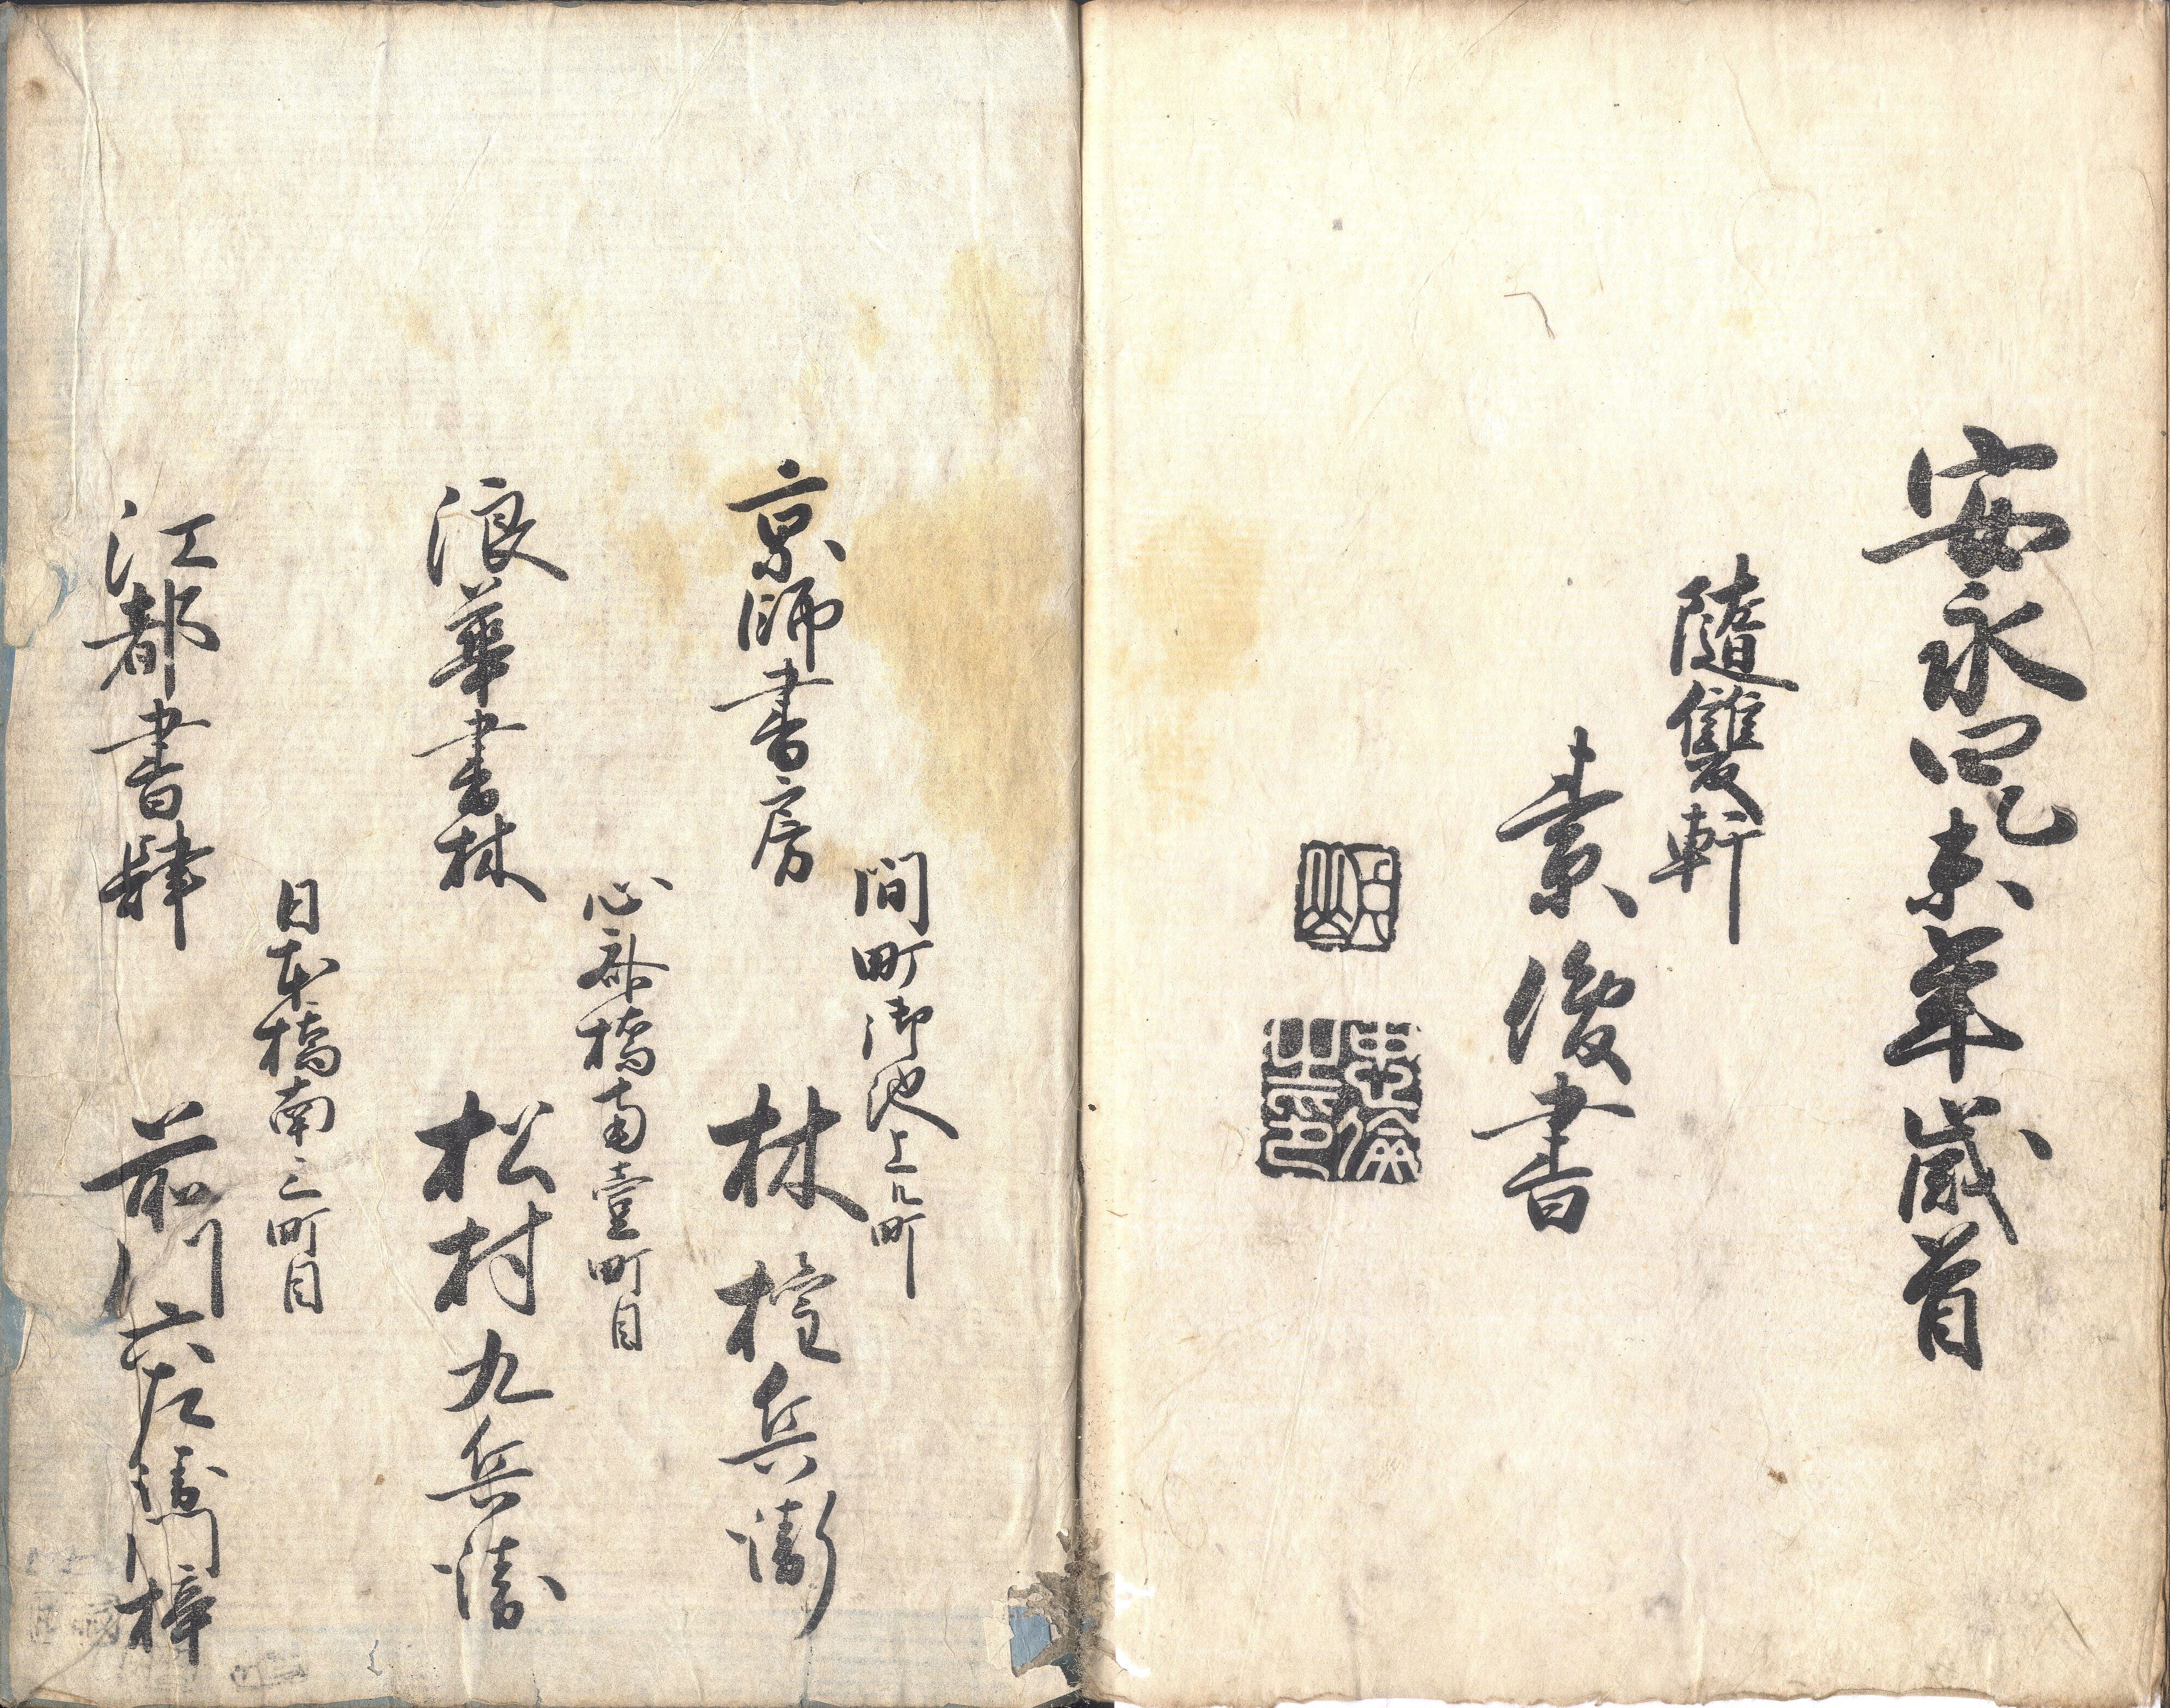 安永四乙未年歳首
隨雙軒
素俊書
間町御池上ル町
京師書房 林 権兵衛
心斎橋南壹町目
浪華書林 松村九兵衛
日本橋南三町目
江都書肆 前川六左衛門梓